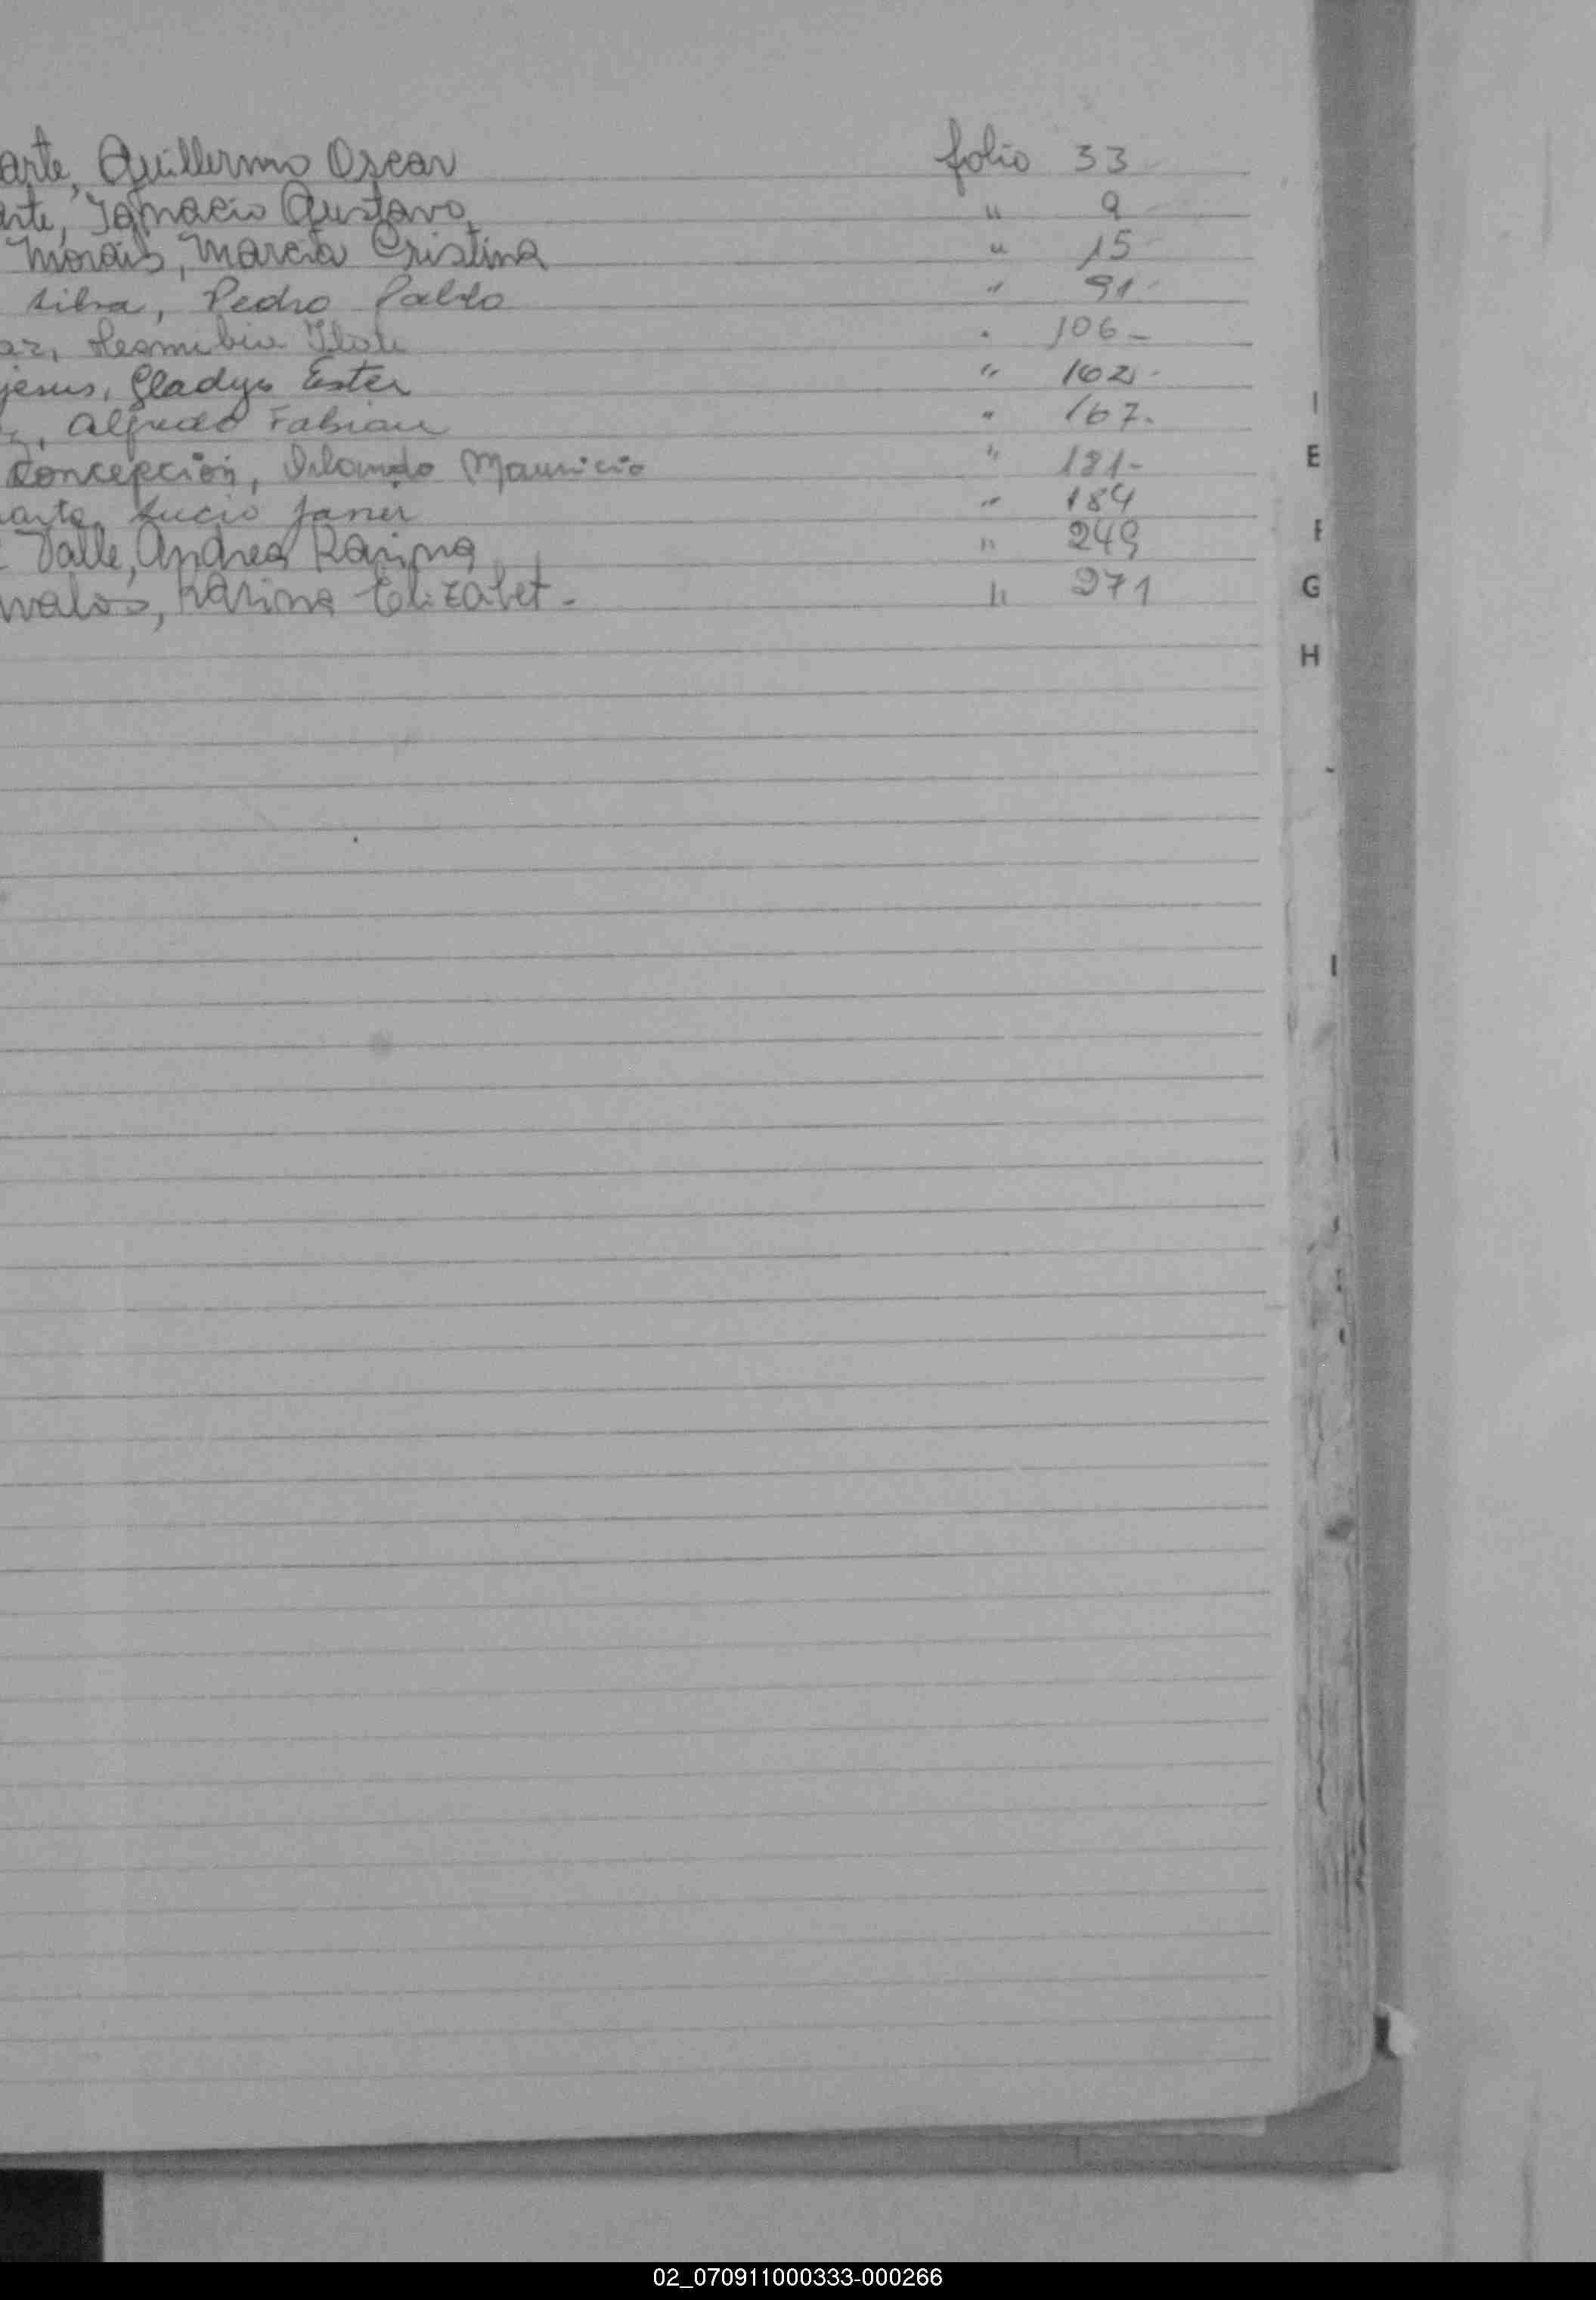 arte, Guillermo Oscar folio 33
arte, Ignacio Gustavo " 9
Morais, Marcia Cristina " 15
silva, Pedro Pablo " 91-
az, " 106-
jesus, Gladys Ester " 102-
z, Alfredo Fabian " 167.
Concepción, Orlando Mauricio " 181-
arte, Lucio Janier " 184
Valle, Andrea Karina " 249
valos, Karina Elizabet- " 271
I
E
F
G
H
02_070911000333-000266